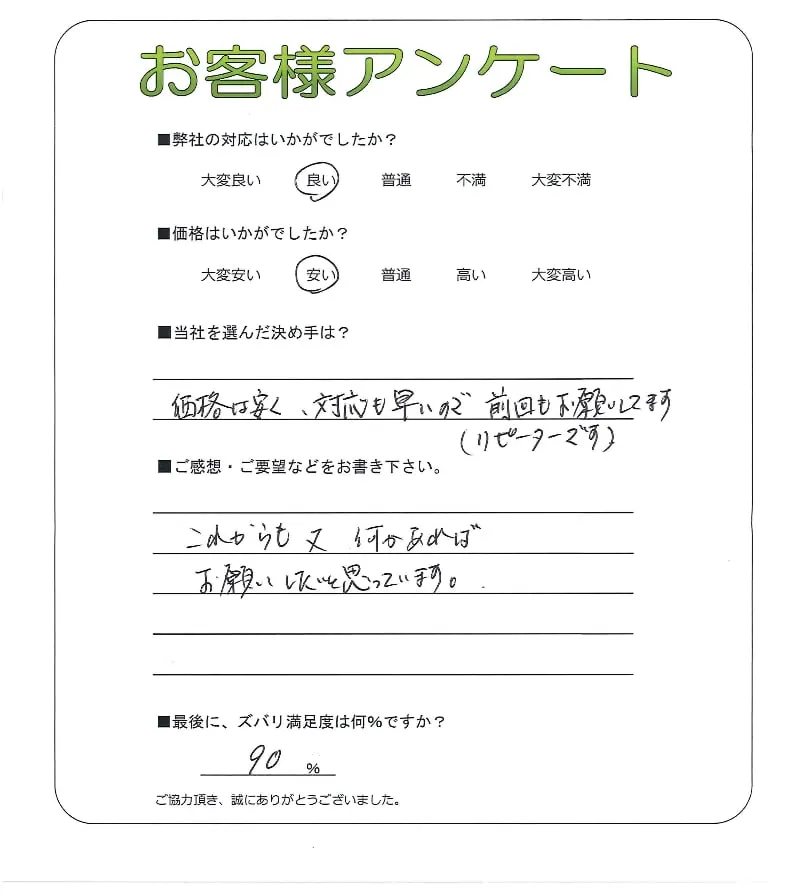 お客様アンケート
■弊社の対応はいかがでしたか？
大変良い 良い 普通 不満 大変不満
■価格はいかがでしたか？
大変安い 安い 普通 高い 大変高い
■当社を選んだ決め手は？
価格は安く、対応も早いので 前回もお願いしてます
(リピーターです)
■ご感想・ご要望などをお書き下さい。
これからも 又 何かあれば
お願いしたいと思っています。
■最後に、ズバリ満足度は何%ですか？
90 %
ご協力頂き、誠にありがとうございました。